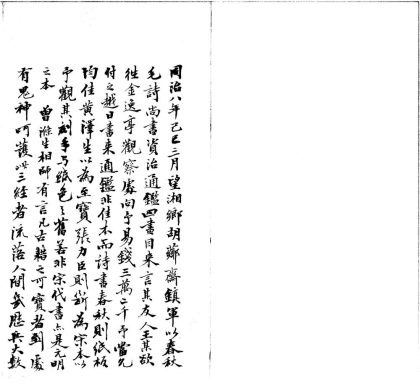 同治八年己巳三月望湘鄉胡薌齋鎮軍以春秋
毛詩尚書資治通鑑四書目來言其友人王某欲
往金逸亭觀察處向予易錢三萬二千予當允
付之越日書來通鑑非佳本而詩書春秋則紙板
均佳黃澤生以為至寶張力臣則斷為宋本以
予觀其刻手與紙色之舊若非宋代書亦是元明
之本 曾滌生相師有言凡古籍之可寶者到處
有鬼神呵護此三經者流落人間幾歷兵火數